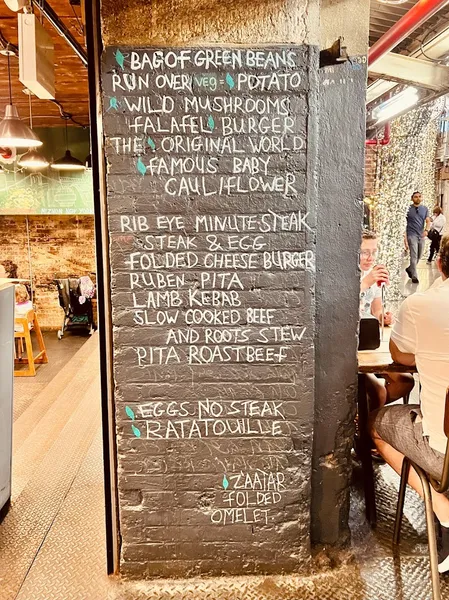 BAG OF GREEN BEANS
RUN OVER VEG = POTATO
WILD MUSHROOMS
FALAFEL BURGER
THE ORIGINAL WORLD
FAMOUS BABY
CAULIFLOWER
RIB EYE MINUTE STEAK
STEAK & EGG
FOLDED CHEESE BURGER
RUBEN PITA
LAMB KEBAB
SLOW COOKED BEEF
AND ROOTS STEW
PITA ROAST BEEF
EGGS NO STEAK
RATATOUILLE
ZAATAR
FOLDED
OMELET